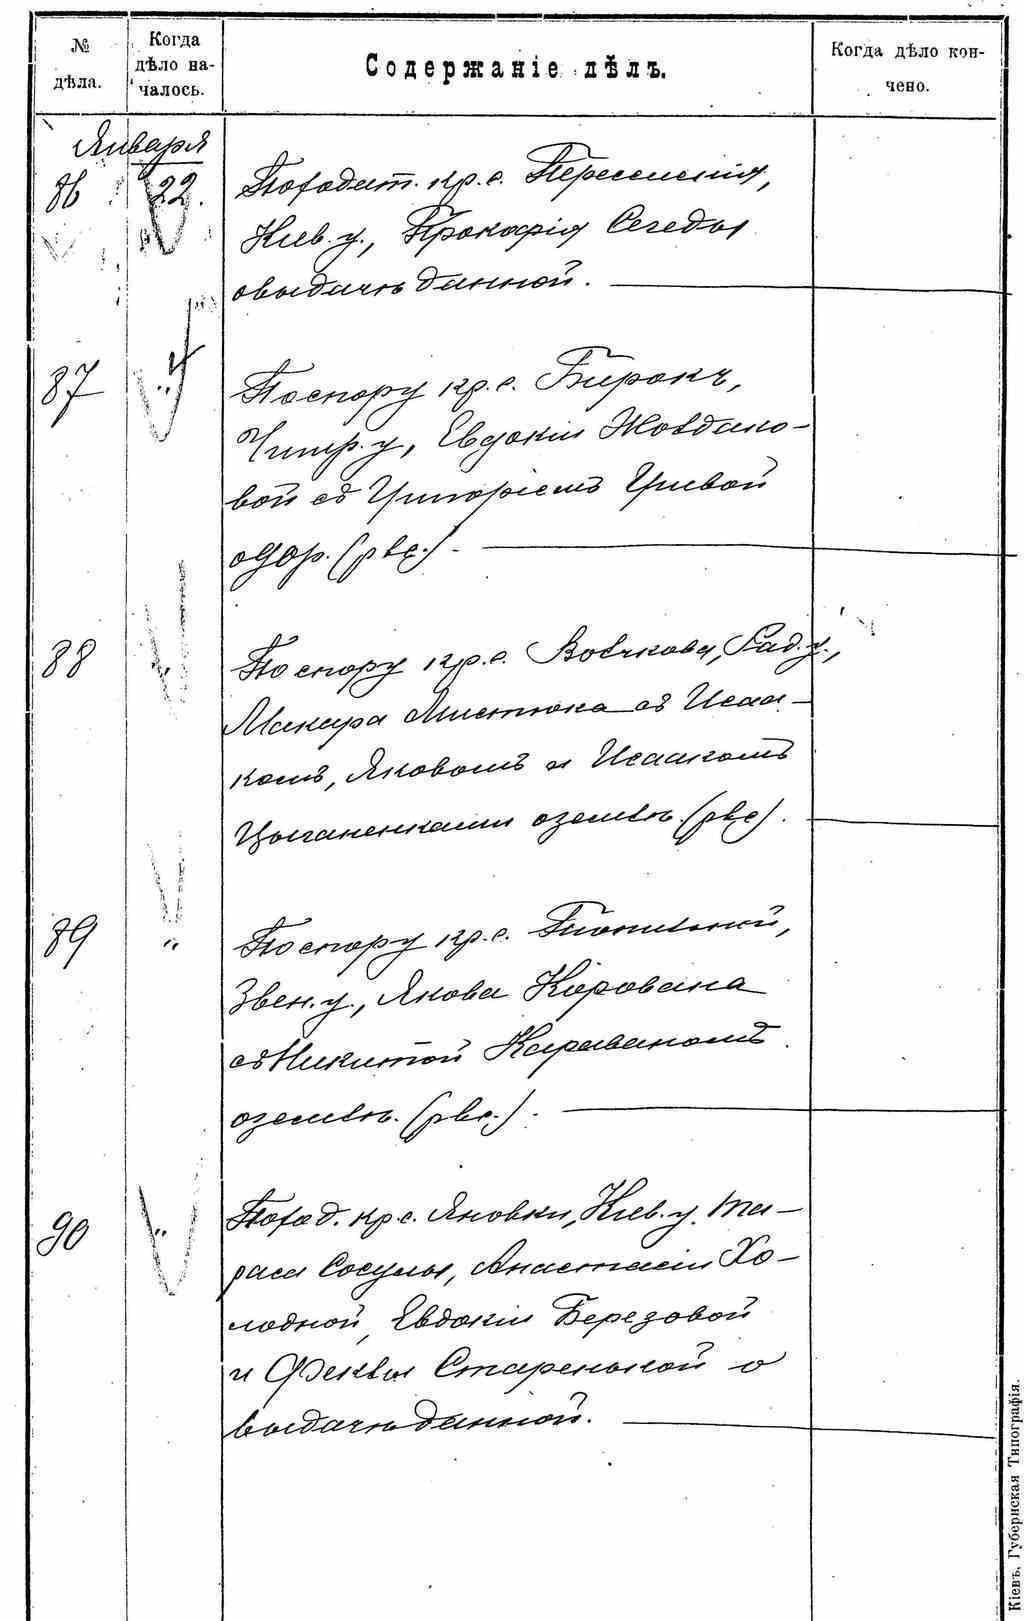 № дѣла.
Когда дѣло началось.
Содержаніе дѣлъ.
Когда дѣло кончено.
Января
86 22. По ходат. кр. с. Переселенія,
Кіев. у., Прокофія Сегеды
о выдачѣ данной.
87 " По спору кр. с. Бирокъ,
Чигир. у., Евдокіи Жовдако-
вой съ Григоріемъ Гривой
о двор. (рвс.).
88 " По спору кр. с. Вовчкова, Рад. у.,
Макара Мистюка съ Исаа-
комъ, Яковомъ и Исаакомъ
Цыганенками о землѣ. (рвс).
89 " По спору кр. с.
Звен. у., Якова Корована
съ Никитой Караваномъ
о землѣ. (рвс.).
90 " По ход. кр. с. Яновки, Кіев. у. Та-
раса Сосулы, Анастасіи Хо-
лодной, Евдокіи Березовой
и Феклы Старенькой о
выдачѣ данной.
Кіевъ, Губернская Типографія.